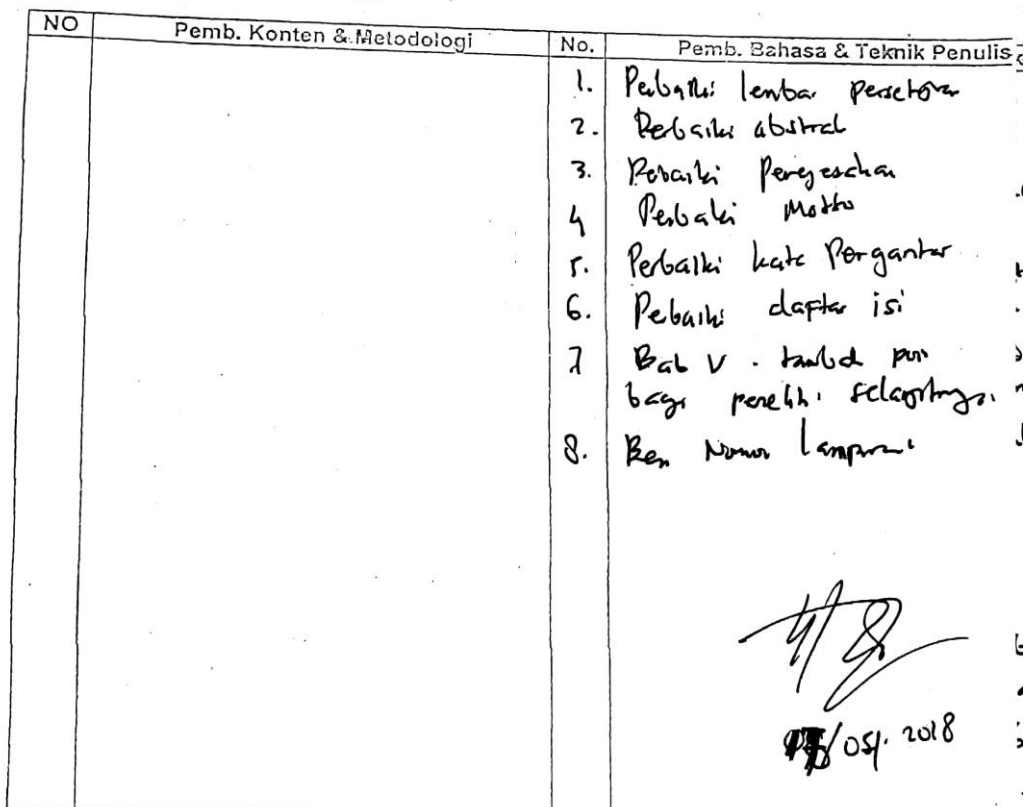 NO Pemb. Konten & Metodologi No. Pemb. Bahasa & Teknik Penulis
1. Perbaiki lembar persetujuan
2. Perbaiki abstrak
3. Perbaiki Pengesahan
4 Perbaiki Motto
5. Perbaiki kata Pengantar
6. Perbaiki daftar isi
7 Bab V . tambah poin
bagi peneliti selanjutnya.
8. Beri Nomor lampiran
/05/. 2018